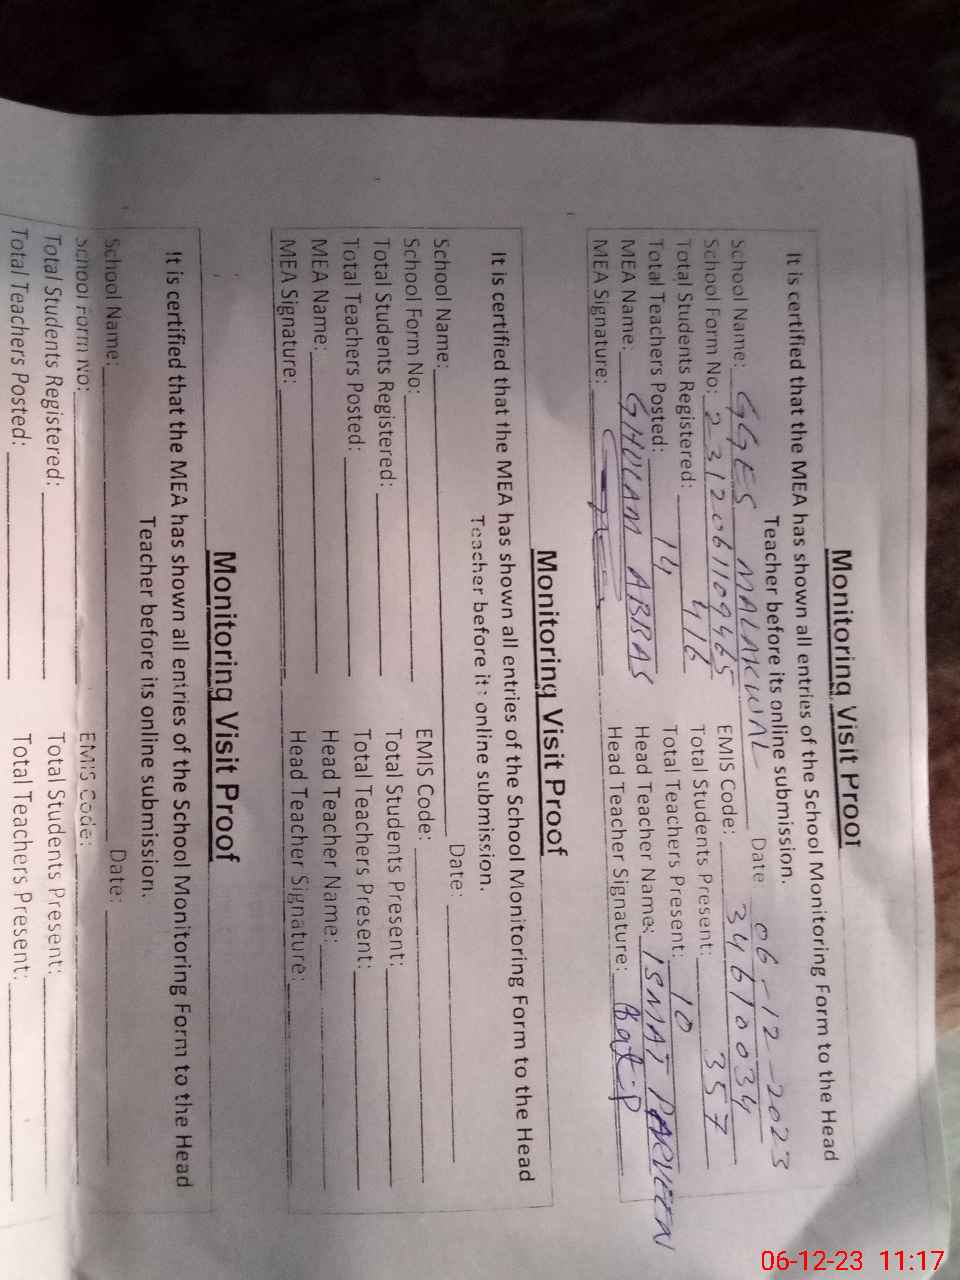 Monitoring Visit Proof
It is certified that the MEA has shown all entries of the School Monitoring Form to the Head
Teacher before its online submission.
School Name: GGES MALAKWAL Date 06-12-2023
School Form No: 2312061109465 EMIS Code: 34610034
Total Students Registered: 416 Total Students Present: 357
Total Teachers Posted: 14 Total Teachers Present: 10
MEA Name: GHULAM ABBAS Head Teacher Name: ISMAT PARVEEN
MEA Signature: Head Teacher Signature:
Monitoring Visit Proof
It is certified that the MEA has shown all entries of the School Monitoring Form to the Head
Teacher before its online submission.
School Name: Date:
School Form No: EMIS Code:
Total Students Registered: Total Students Present:
Total Teachers Posted: Total Teachers Present:
MEA Name: Head Teacher Name:
MEA Signature: Head Teacher Signature:
Monitoring Visit Proof
It is certified that the MEA has shown all entries of the School Monitoring Form to the Head
Teacher before its online submission.
School Name: Date:
School Form No: EMIS Code:
Total Students Registered: Total Students Present:
Total Teachers Posted: Total Teachers Present:
06-12-23 11:17